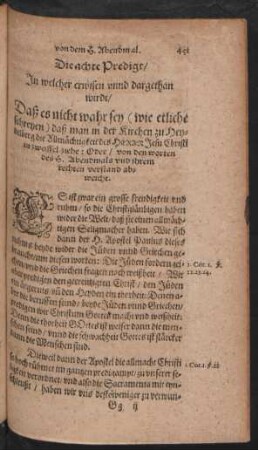 von dem H. Abendmal. 451
Die achte Predigt/
In welcher erwisen vnnd dargethan
wirdt/
Daß es nicht wahr sey (wie etliche
schreyen) daß man in der Kirchen zu Hey-
delberg die Allmächtigkeit des HERREN Jesu Christi
in zweiffel ziehe: Oder/ von den worten
des H. Abendmals vnd ihrem
rechten verstand ab-
weiche.
ES ist zwar ein grosse freudigkeit vnd
ruhm/ so die Christglaubigen haben
wider die Welt/ daß sie einen allmäch-
tigen Seligmacher haben. Wie sich
dann der H. Apostel Paulus dieses
beyde wider die Jüden vnnd Griechen
diesen worten: Die Jüden fordern 1. Cor. 1. v.
vnd die Griechen fragen nach weißheit/ Wir 22.23.24.
predigen den gecreutzigten Christ/ den Jüden
den Heyden ein thorheit. Denen
die beruffen sind/ beyde Jüden vnnd Griechen/
wir Christum Gottes macht vnd weißheit.
Denn die thorheit GOttes ist weiser dann die men-
schen sind/ vnnd die schwachheit Gottes ist stärcker
dann die Menschen sind.
Dieweil dann der Apostel die allmacht Christi
so hoch rühmet im gantzen predigampt/
vnd also die Sacramenta mit eyn-
schleust/ haben wir vns destoweniger zu verwun-
Gg ij